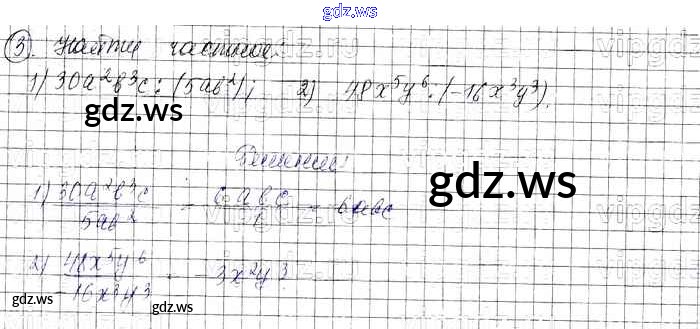 gdz.ws
3. Найти частное:
1) 30a²b³c : (5ab²); 2) 48x⁵y⁶ : (-16x³y³).
gdz.ws
gdz.ws
Решение:
1) 30a²b³c / 5ab² = 6abc / 1 = 6abc
gdz.ws
2) 48x⁵y⁶ / -16x³y³ = -3x²y³
gdz.ws
gdz.ws